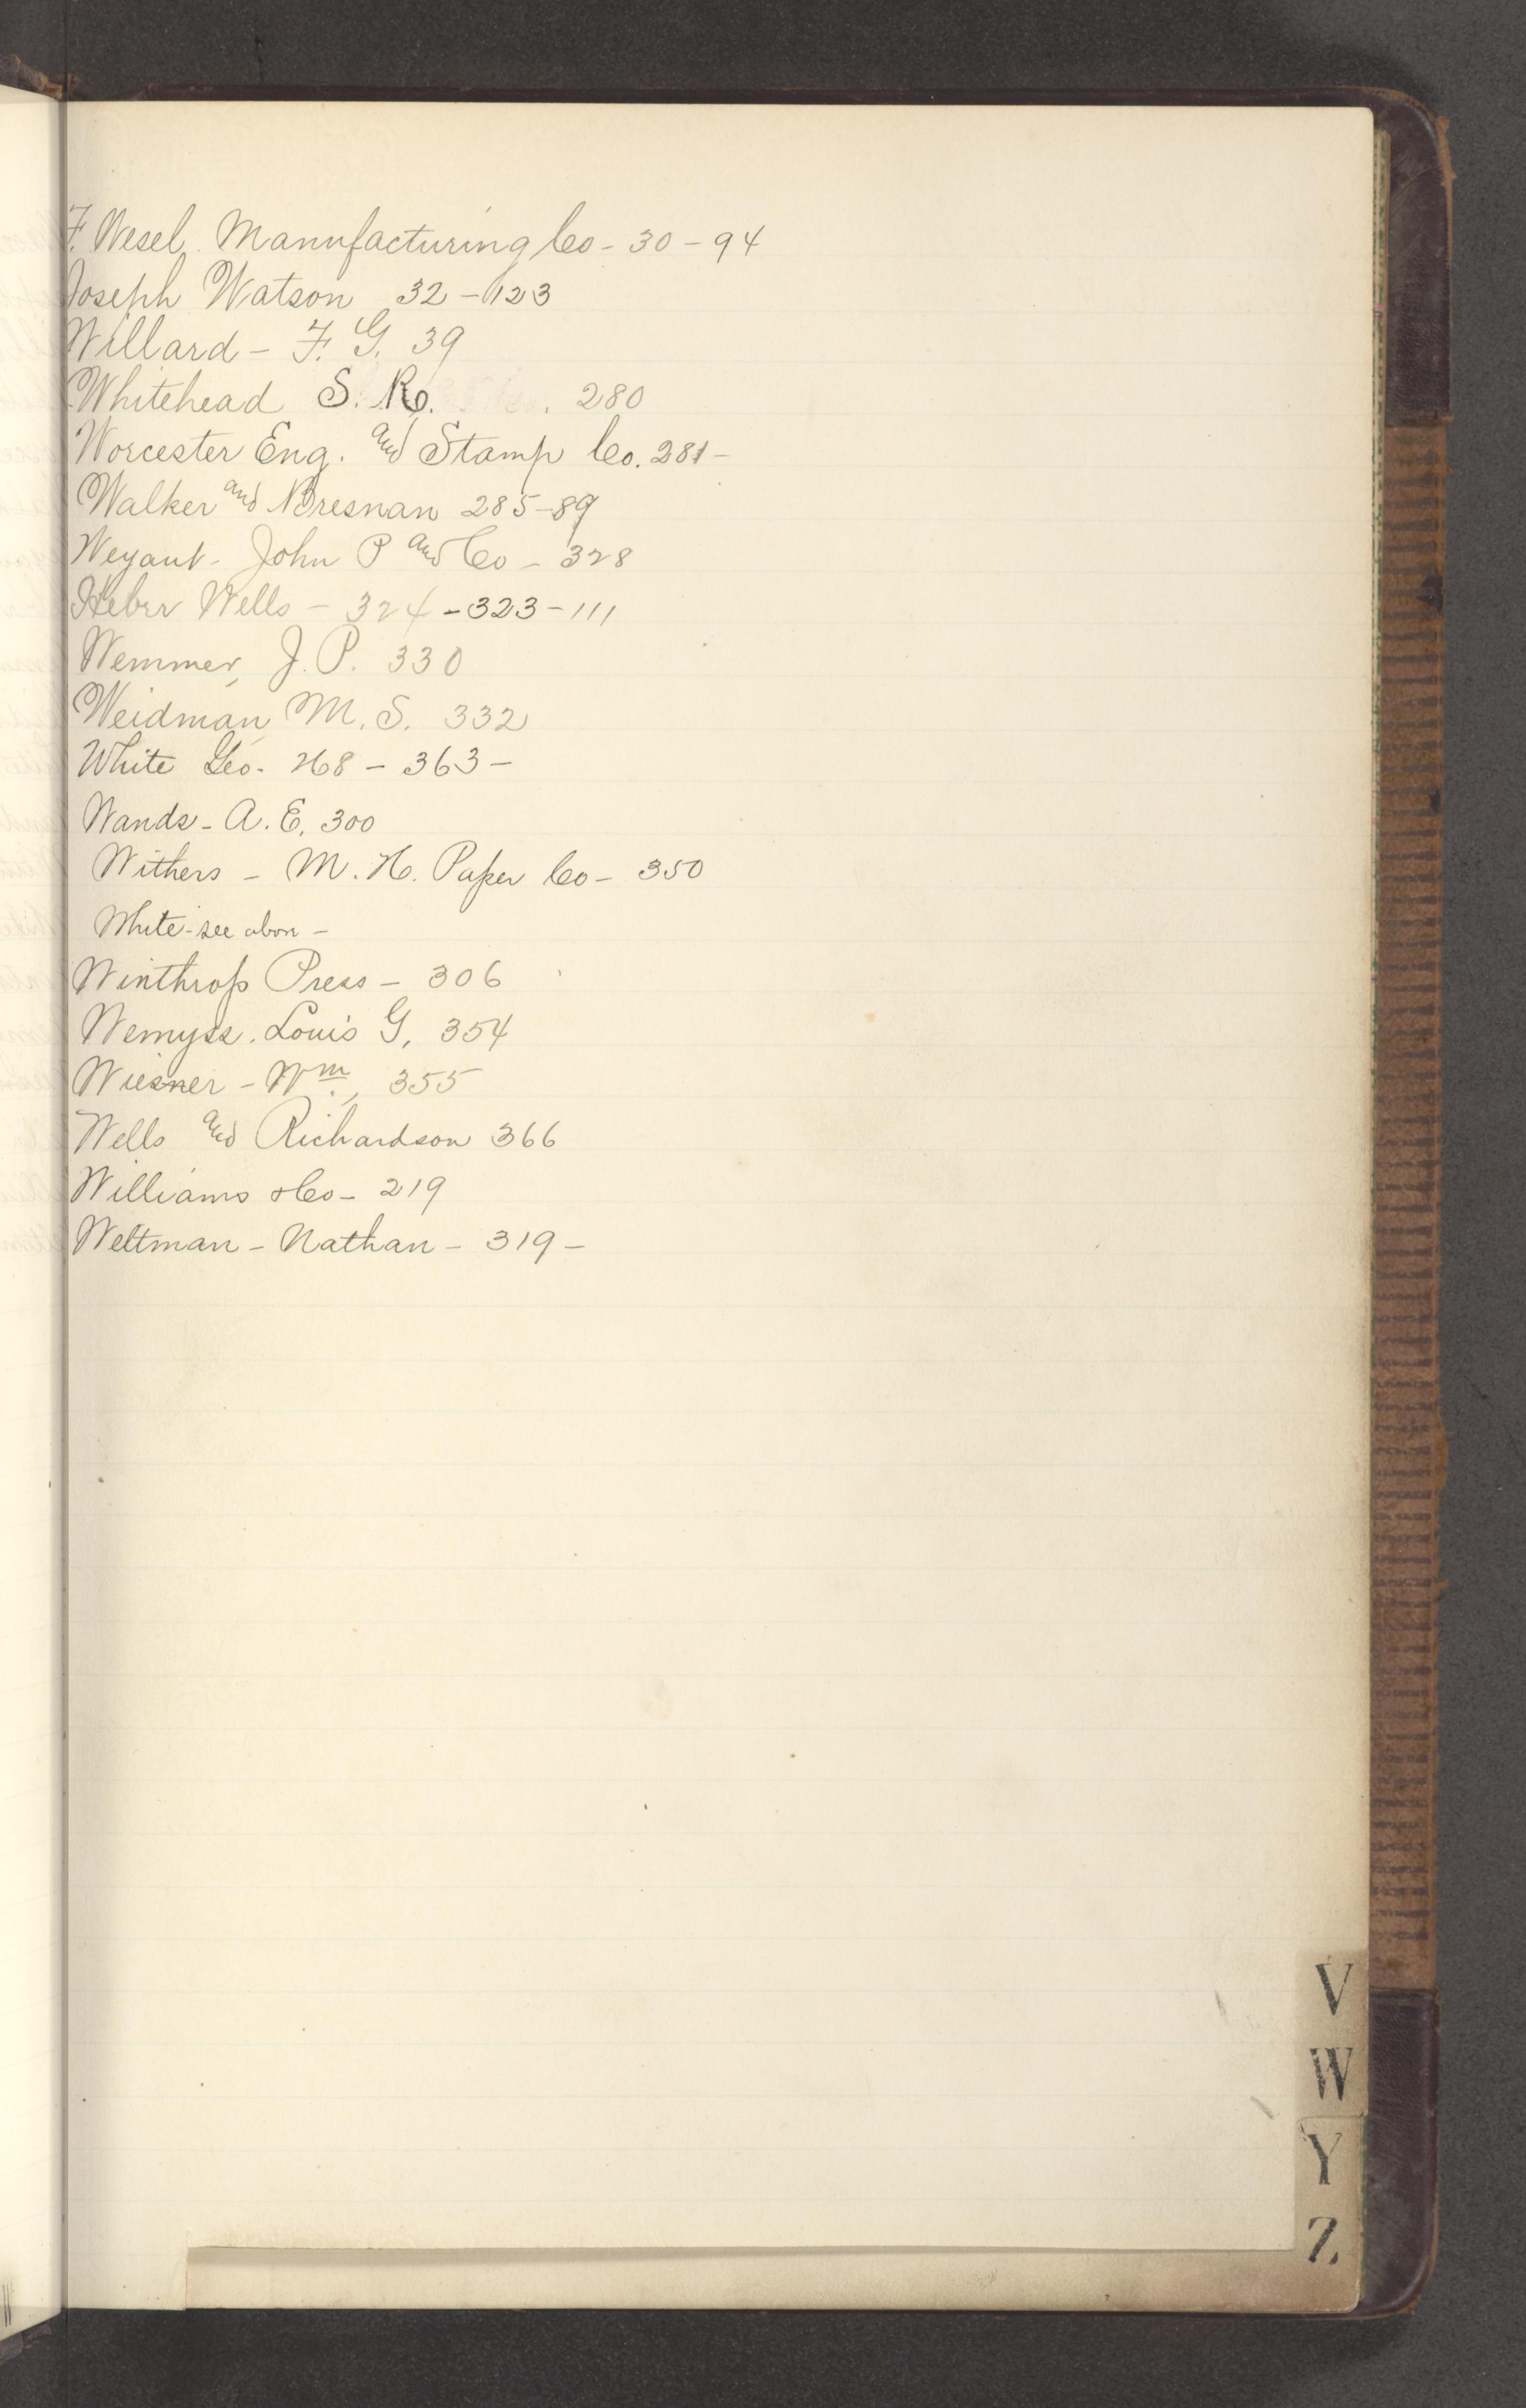 F. Wesel Manufacturing Co - 30 - 94
Joseph Watson 32 - 123
Willard - F. G. 39
Whitehead S. R. 280
Worcester Eng. and Stamp Co. 281 -
Walker and Bresnan 285-89
Weyant - John P and Co - 328
Heber Wells - 324 - 323 - 111
Wemmer, J. P. 330
Weidman, M. S. 332
White Geo. 268 - 363 -
Wands - A. E. 300
Withers - M. H. Paper Co - 350
White - see above -
Winthrop Press - 306
Wemyss. Louis G. 354
Wiesner - Wm., 355
Wells and Richardson 366
Williams & Co - 219
Weltman - Nathan - 319 -
V
W
Y
Z